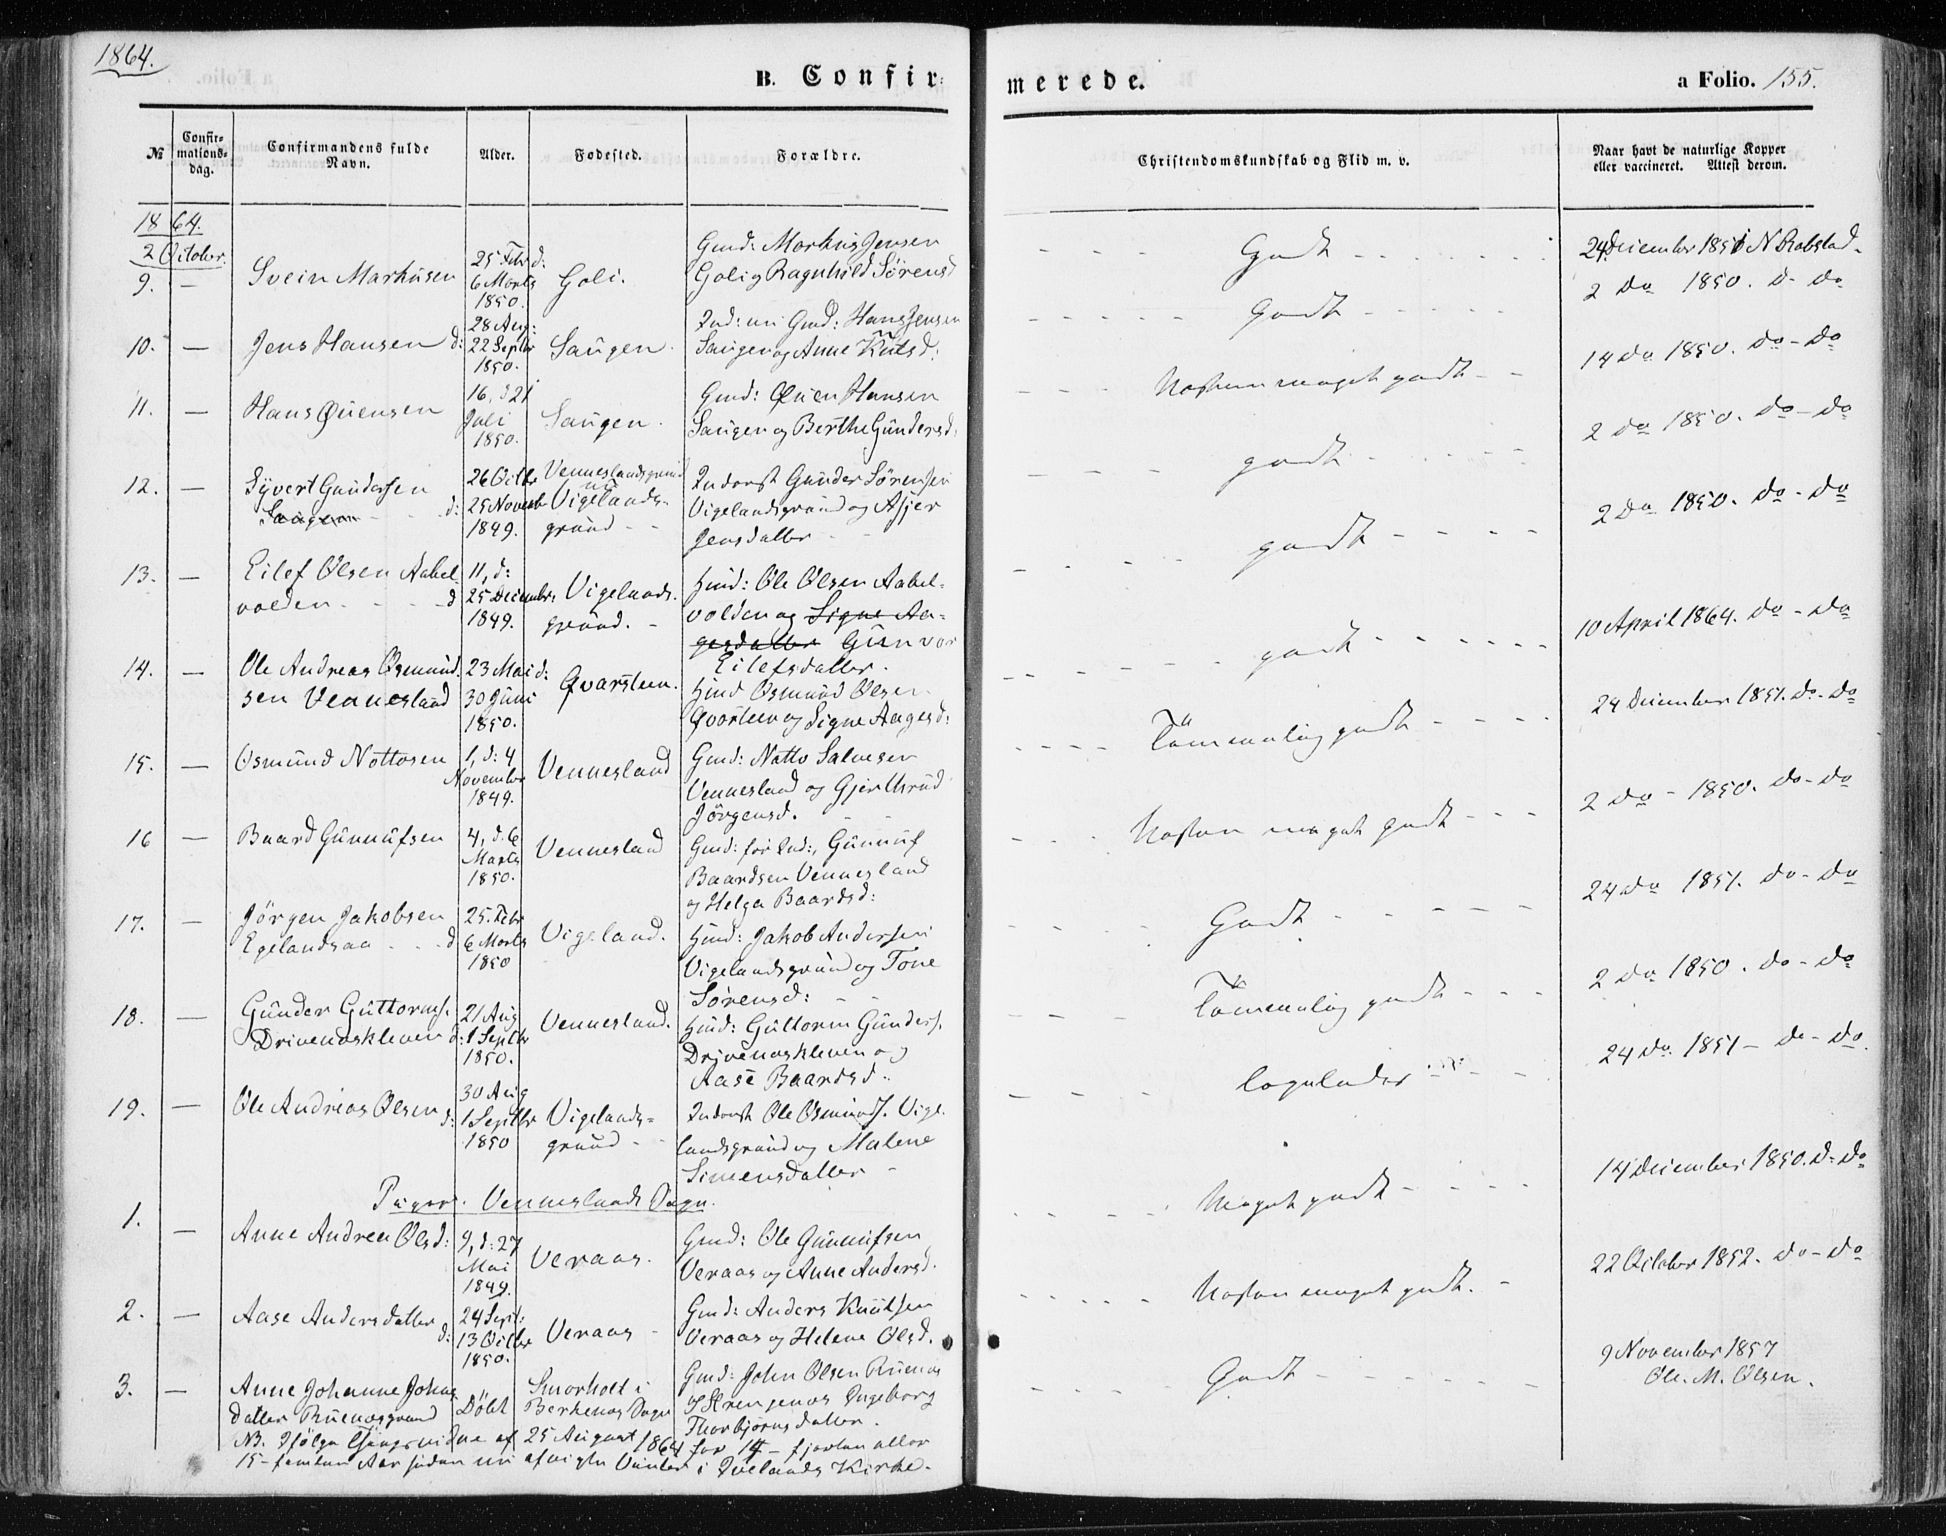 1864.
B. Confirmerede.
a Folio. 155.
№
Confirmationsdag.
Confirmandens fulde Navn.
Alder.
Fødested.
Forældre.
Christendomskundskab og Flid m. v.
Naar havt de naturlige Kopper eller vaccineret. Attest derom.
1864.
2 October.
9. — Svein Markusen 25 Febr d: 6 Marts 1850. Goli. Gmd: Markus Jensen Goli og Ragnhild Sörensd Godt 24 December 1851 N Drabstad.
10. — Jens Hansen d: 28 Aug: 22 Septbr 1850. Saugen. Ind: nu Gmd: Hans Jensen Saugen og Anne Knutsd. Godt 2 do 1850. d- do
11. — Hans Øuensen 16, d 21 Juli 1850. Saugen. Gmd: Øuen Hansen Saugen og Berthe Gundersd. Næsten meget godt 14 do 1850. do - do
12. — Syvert Gundersen Saugen d: 26 Octbr 25 Novembr 1849. Venneslandsgrund nu Vigelandsgrund Inderst Gunder Sörensen Vigelandsgrund og Asjer Jensdatter godt 2 do 1850. do - do
13. — Eilef Olsen Aabelvolden d 11, d: 25 Decembr. 1849. Vigelandsgrund. Huusd: Ole Olsen Aabelvolden og Signe Aagesdatter Gunvor Eilefsdatter. godt 2 do 1850. do - do
14. — Ole Andreas Osmundsen Vennesland 23 Mai d: 30 Juni 1850. Qvarsteen. Huusd Osmund Olsen Qvarsteen og Signe Aagesd: godt 10 April 1864. do - do
15. — Osmund Nottosen 1, d: 4 November 1849. Vennesland Gmd: Notto Salvesen Vennesland og Gjerthrud Jörgensd. Temmelig godt 24 December 1851. do - do
16 — Baard Gunnufsen 4, d. 6 Marts 1850. Vennesland Gmd: för Ind:, Gunnuf Baardsen Vennesland og Helga Baardsd: Næsten meget godt 2 do - 1850. do - do
17. — Jörgen Jakobsen Egelandsaa d 25. Febr 6 Marts 1850 Vigeland. Huusd: Jakob Andersen Vigelandsgrund og Tone Sörensd: Godt 24 do 1851. do - do
18. — Gunder Guttorms. Drivenaskleven d: 21 Aug 1 Septbr 1850. Vennesland. Huusd: Guttorm Gunders. Drivenaskleven og Aase Baardsd. Temmelig godt 2 do 1850. do - do
19. — Ole Andreas Olsen d: 30 Aug 1 Septbr 1850 Vigelandsgrund Inderst Ole Osmunds. Vigelandsgrund og Malene Simensdatter 24 do 1851 - do - do.
Piger. Venneslands Sogn.
1. — Anne Andrea Olsd: 9, d: 27 Mai 1849. Veraas. Gmd: Ole Gunnufsen Veraas og Anne Andersd. Meget godt 14 December 1850. d- do
2. — Aase Andersdatter d: 24 Sept: 13 Octbr 1850. Veraas Gmd: Anders Knutsen Veraas og Helene Olsd. Næsten meget godt. 22 October 1852. do - do
3. — Anne Johanne Johnsdatter Ruenesgrund Döbt Smorholt i Berkenes Sogn Gmd: John Olsen Ruenes Ingeborg Thorbjörnsdatter. Godt 9 November 1857 Ole. M. Olsen.
NB. Ifölge af 25 August 1864 for 14 - fjorten eller
15 - femten Aar siden i Kirke.